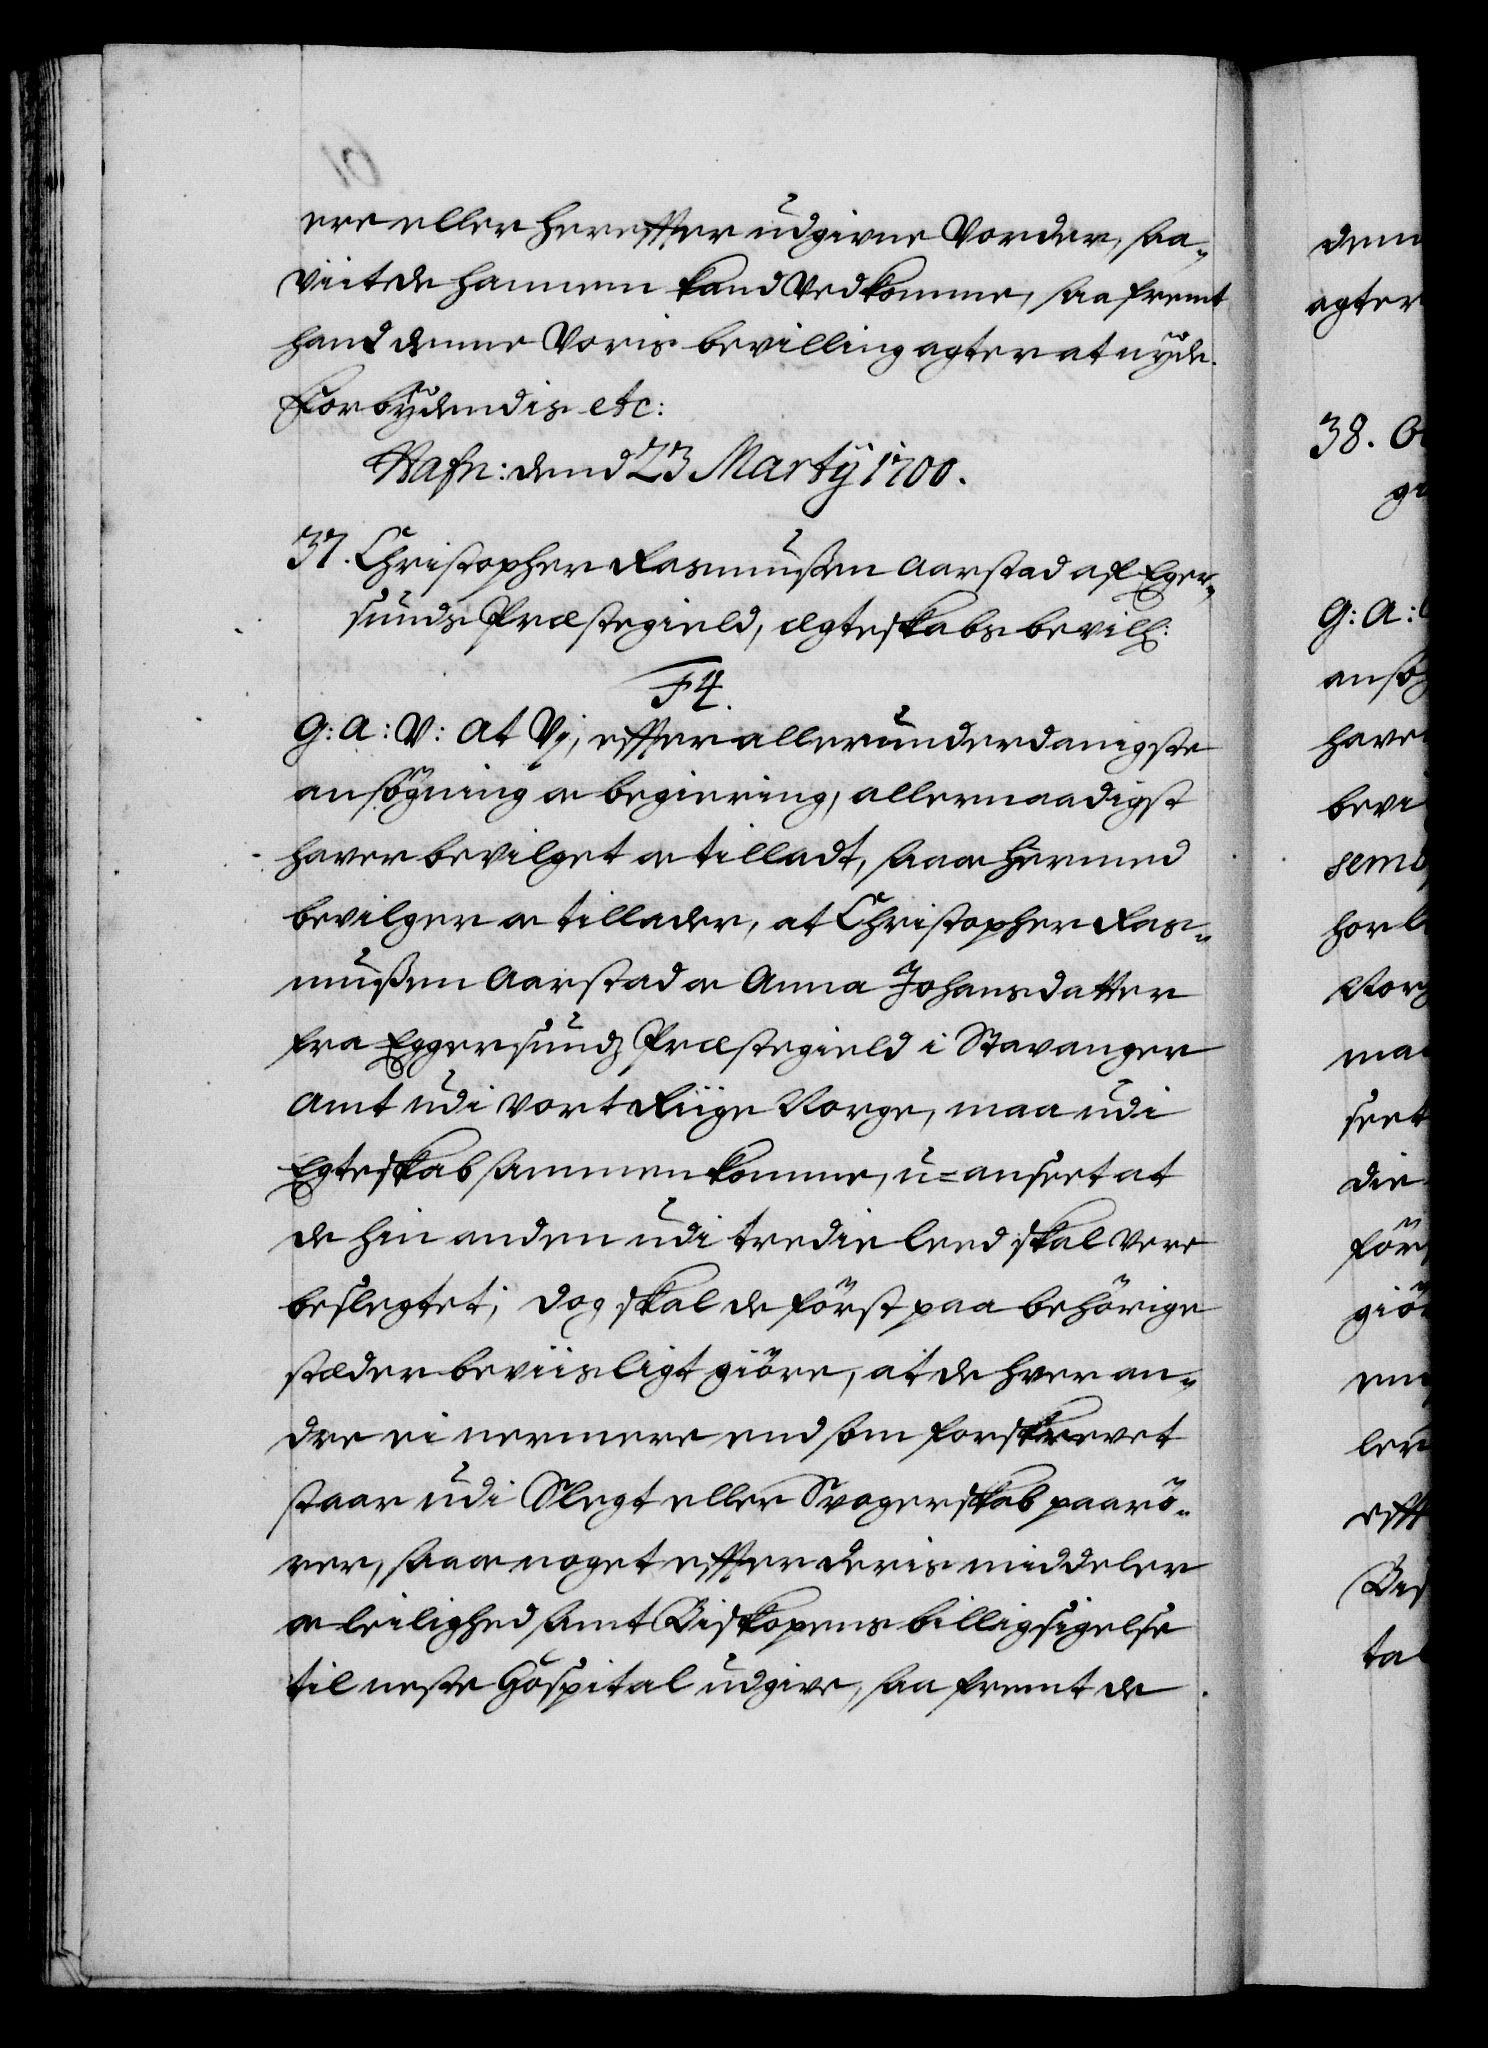 ere eller hereffter udgivne Vorder, saa-
viit de hannem kand Vedkomme, saa fremt
hand denne Voris bevilling agter at nyde.
Forbydendis etc:
Hafn: dend 23 Martÿ 1700.
37. Christopher Rasmussen Aarstad af Eger-
sunds Præstegield, ægteskabs bevilh:
F4.
G: A: V: At Vj, effter allerunderdanigste
ansögning oc begiering, allernaadigst
haver bevilget oc tilladt, saa oc hermed
bevilger oc tillader, at Christopher Ras-
mussen Aarstad oc Anna Johansdatter
fra Eggersunds Præstegield i Stavanger
Amt udi vort Riige Norge, maa udi
Egteskab sammenkomme, u=anseet at
de hin anden udi tredie leed skal vere
beslegtet; dog skal de först paa behörige
stæder beviisligt giöre, at de hver an-
dre ei nermere end som forskrevet
staar udi Slegt eller Svogerskab paarö-
rer, saa oc noget effter deris middeler
oc leilighed samt Biskopens billigsigelse
til neste Hospital udgive, saa fremt de
dem
agter
38.
G: A:
ansög
have
bevi
hor
Norg
ma
seet
die
för
giö
en
ler
efft
Bis
tal